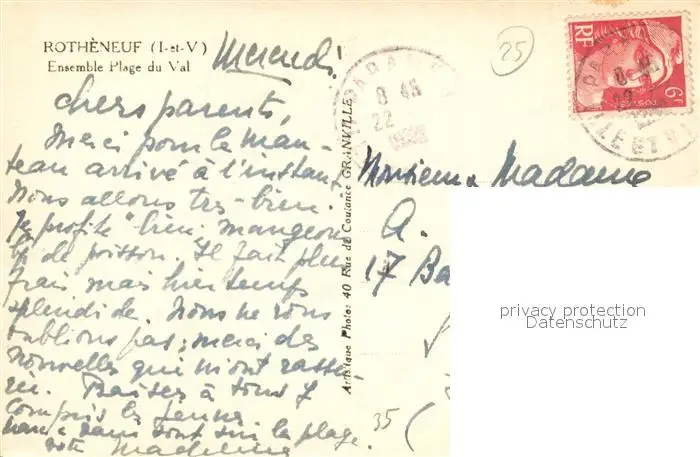 ROTHÈNEUF (I-et-V)
Ensemble Plage du Val
Mercredi
25
chers parents,
Merci pour le man-
teau arrivé à l'instant
Nous allons très bien.
Je profite bien, mangeons
de poisson. Il fait plus
frais mais bien temps
splendide. Nous ne vous
oublions pas; merci des
nouvelles qui m'ont rassu-
rée. Baisers à tous y
compris les jeunes
dans sont sur la plage.
votre Madeleine
Artistique Photo: 40 Rue de Coutance GRANVILLE
PARAMÉ
8 45
22
RF
6F
POSTES
PARAMÉ
8 45
22
ILLE ET VIL
Monsieur & Madame
A.
17 Ba
35
privacy protection
Datenschutz